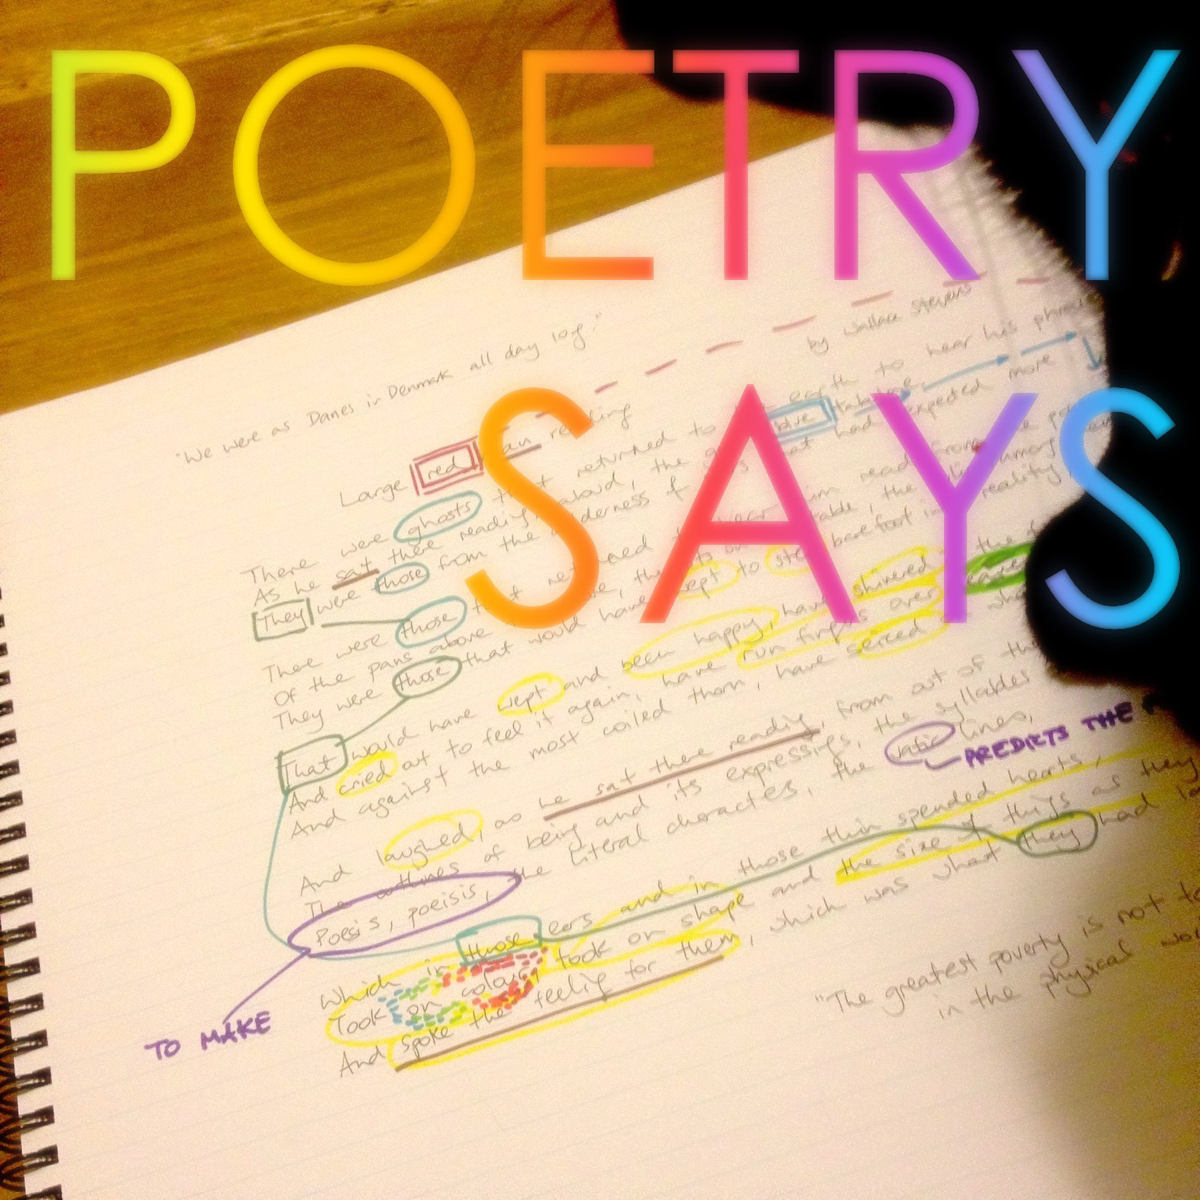 POETRY
SAYS
"We were as Danes in Denmark all day long."
by Wallace Stevens
Large red man reading
There were ghosts that returned to earth to hear his phrases
As he sat there reading, aloud, the blue tabulae
They were those from the wilderness of that had expected more
There were those that returned to hear him read from the
Of the pans above the
They were those that would have wept to step barefoot into reality
That would have wept and been happy, have shivered in the
And cried out to feel it again, have run fingers over leaves
And against the most coiled thorn, have seized
And laughed, as he sat there reading, from out of the
The outlines of being and its expressings, the syllables
Poesis, poeisis, the literal characters, the vatic lines,
PREDICTS THE
Which in those ears and in those thin, spended hearts,
Took on color, took on shape and the size of things as they
And spoke the feeling for them, which was what they had
TO MAKE
"The greatest poverty is not to
in the physical